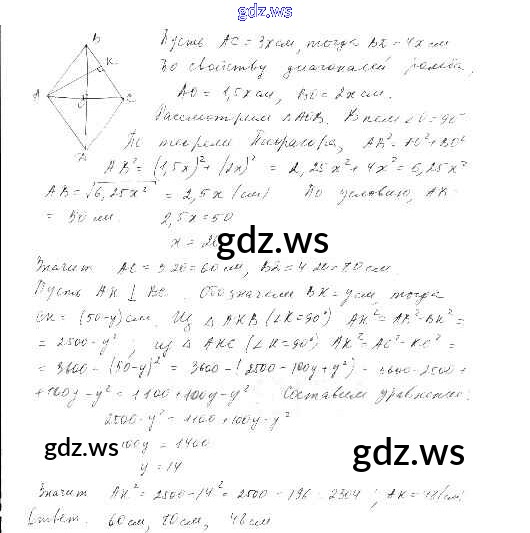 gdz.ws
B
K
A
O
C
D
Пусть AC = 3x см, тогда BD = 4x см
По свойству диагоналей ромба,
AO = 1,5x см, BO = 2x см.
Рассмотрим △AOB. В нем ∠O = 90°
По теореме Пифагора, AB² = AO² + BO²
AB² = (1,5x)² + (2x)² = 2,25x² + 4x² = 6,25x²
AB = √6,25x² = 2,5x (см) По условию, AB
= 50 см. 2,5x = 50
x = 20
gdz.ws
Значит AC = 3·20 = 60 см, BD = 4·20 = 80 см.
Пусть AK ⊥ BC. Обозначим BK = y см, тогда
CK = (50-y) см. Из △AKB (∠K = 90°) AK² = AB² - BK² =
= 2500 - y²; из △AKC (∠K = 90°) AK² = AC² - KC² =
= 3600 - (50-y)² = 3600 - (2500 - 100y + y²) = 3600 - 2500 +
+ 100y - y² = 1100 + 100y - y². Составим уравнение:
2500 - y² = 1100 + 100y - y²
gdz.ws 100y = 1400 gdz.ws
y = 14
Значит AK² = 2500 - 14² = 2500 - 196 = 2304; AK = 48 (см)
Ответ. 60 см, 80 см, 48 см